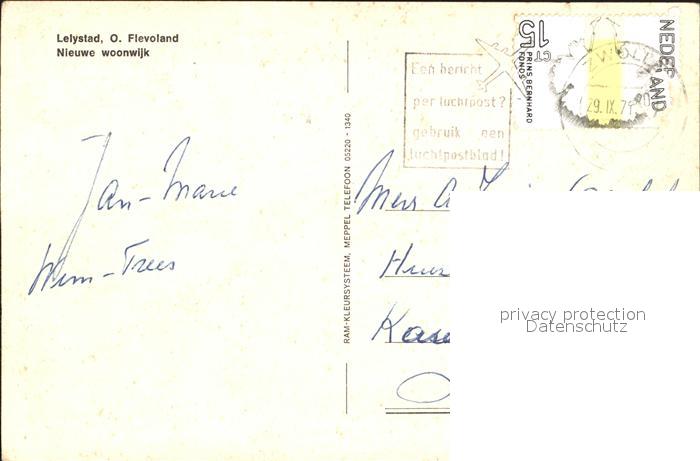 Lelystad, O. Flevoland
Nieuwe woonwijk
Jan - Marie
Wim - Trees
RAM-KLEURSYSTEEM, MEPPEL TELEFOON 05220 - 1340
Een bericht
per luchtpost?
gebruik een
luchtpostblad!
15 CT
PRINS BERNHARD
FONDS
NEDERLAND
ZWOLLE
29. IX. 71
privacy protection
Datenschutz